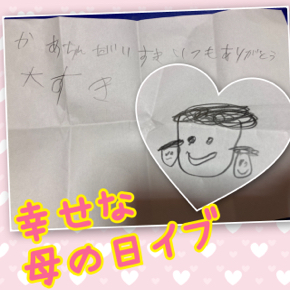 かあちゃんだいすきいつもありがとう
大すき
幸せな
母の日イブ